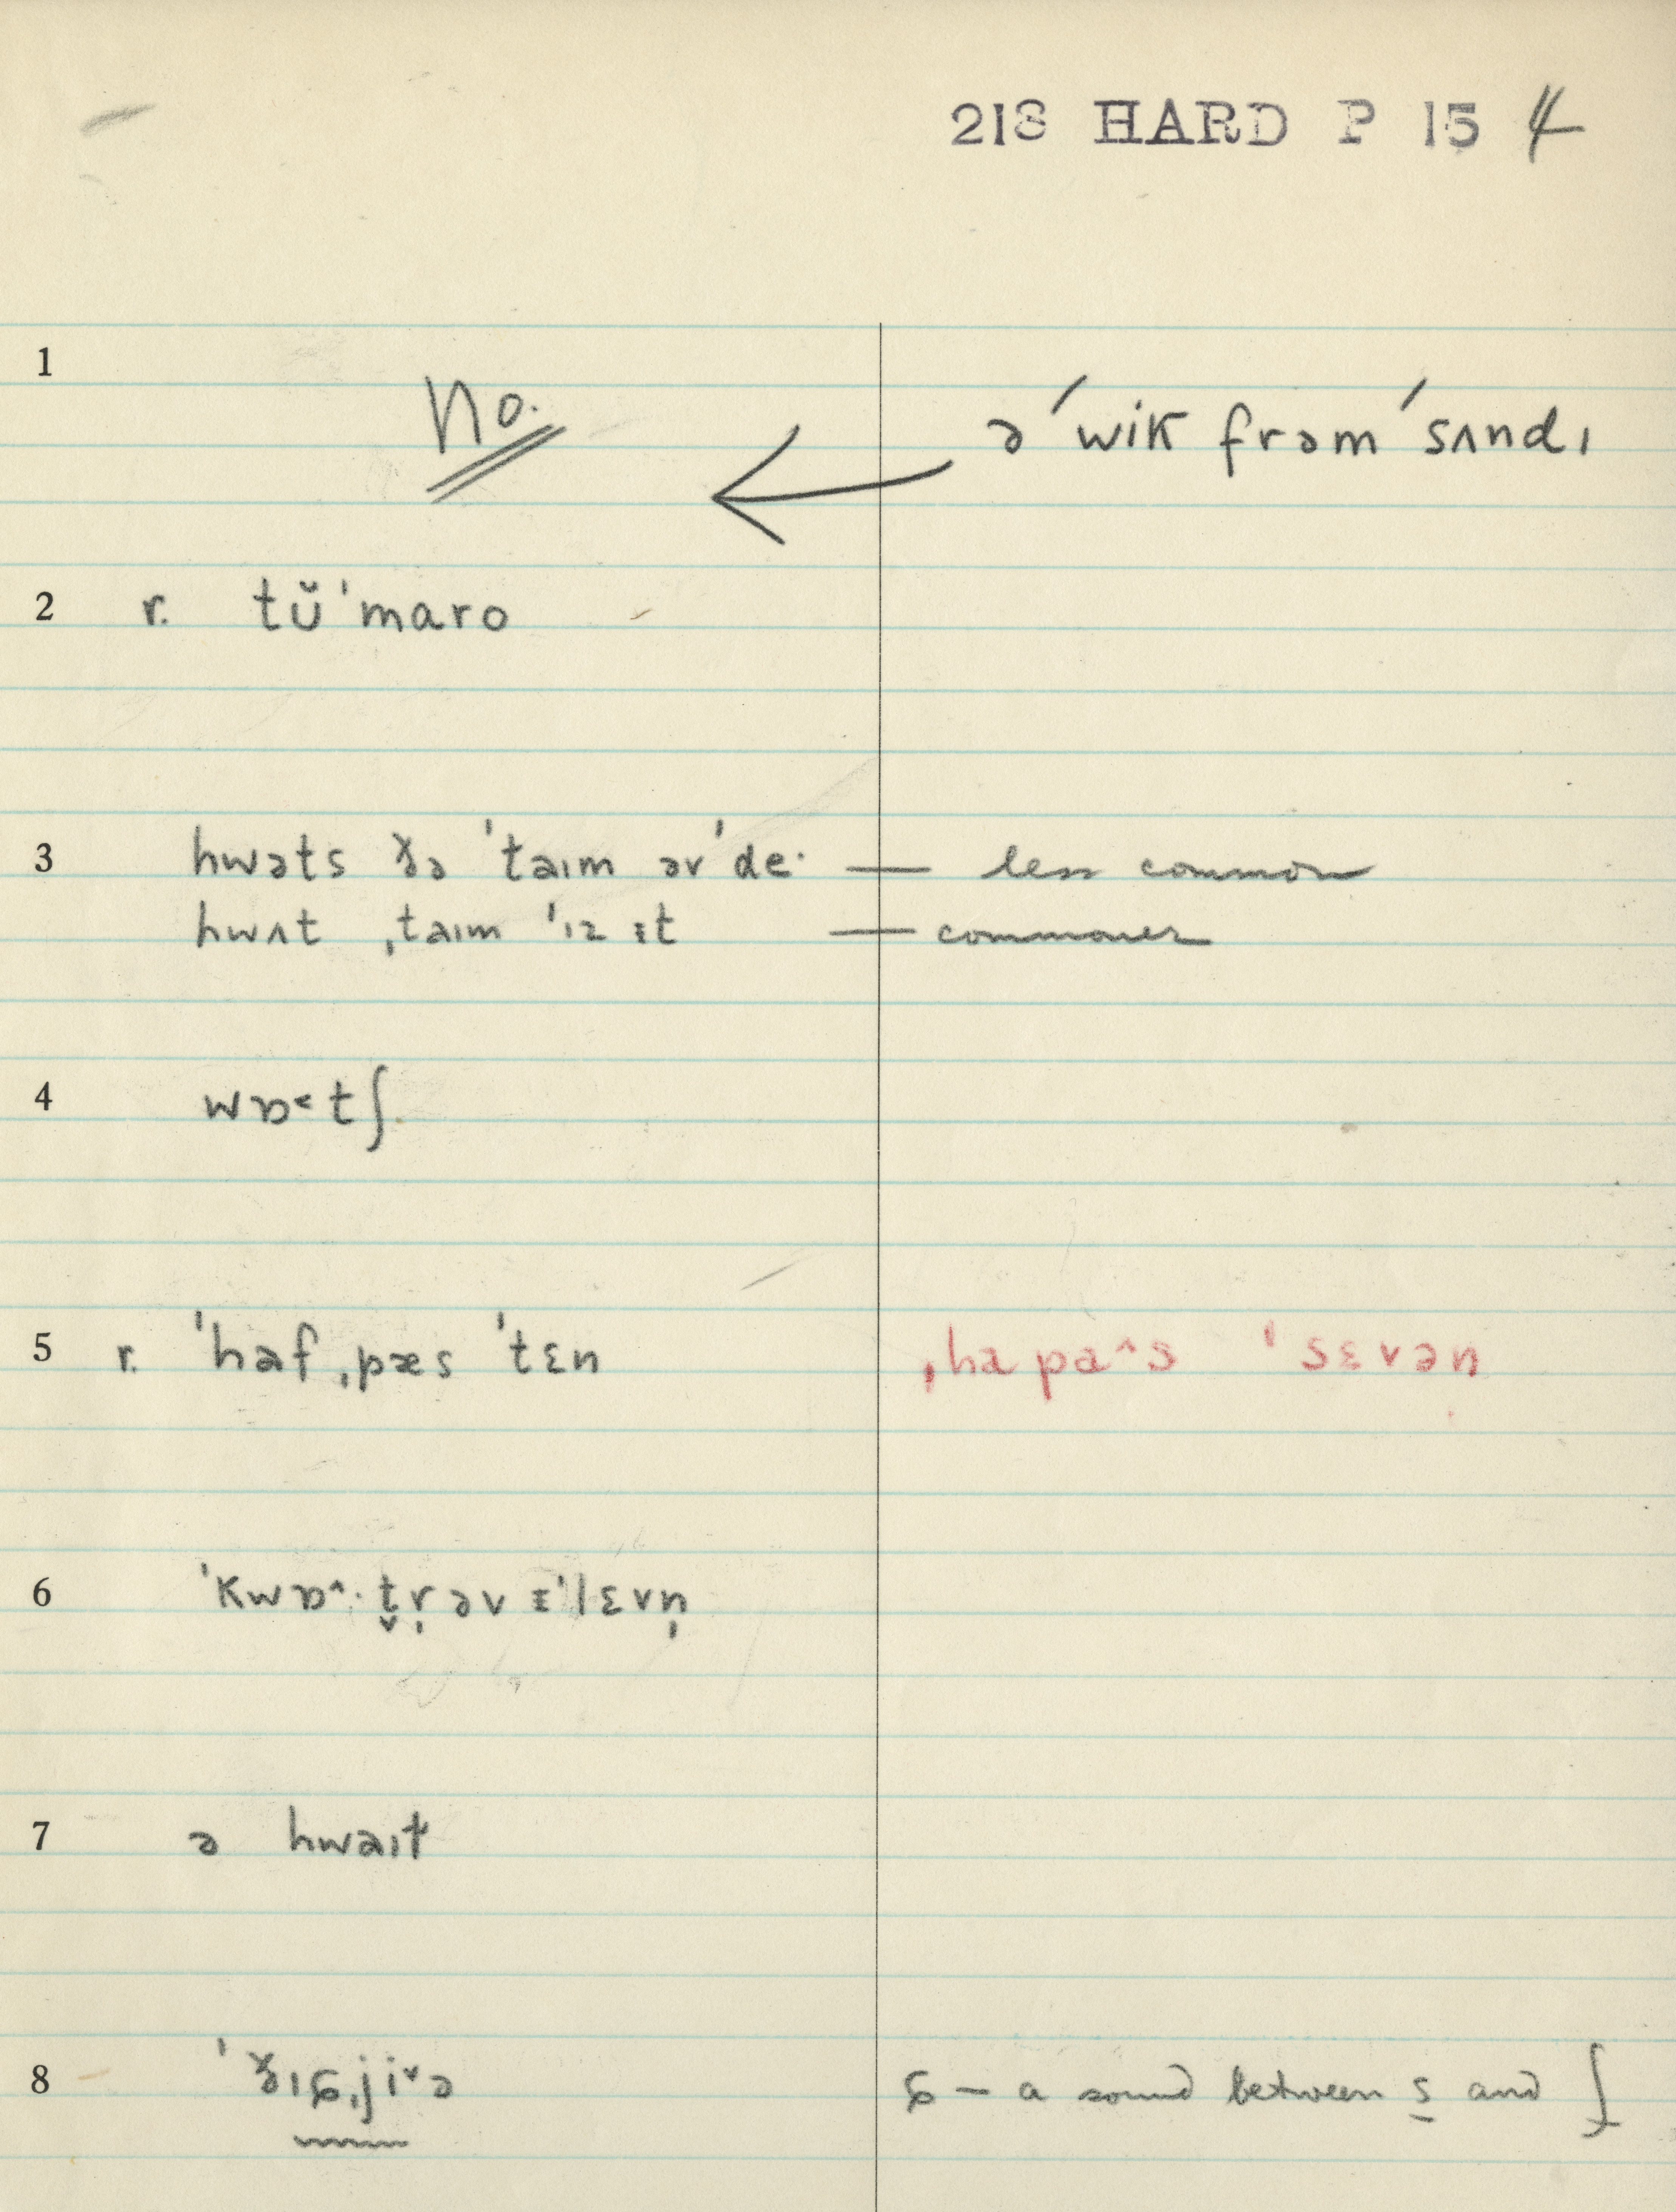 218 HARD P 15 4
1 no. ə ˈwik frəm ˈsʌndɪ
2 r. tŭˈmaro
3 hwəts ðə ˈtaɪm əv ˈde· — less common
hwʌt ˌtaɪm ˈɪz ɪt — commoner
4 wɒ˂tʃ
5 r. ˈhaf ˌpæs ˈtɛn ˌha pa^s ˈsɛvən
6 ˈkwɒ^· t̬r̩əv ɪˈlɛvn̩
7 ə hwaɪt
8 ˈðɪɕˌjiˇə ɕ — a sound between s and ʃ